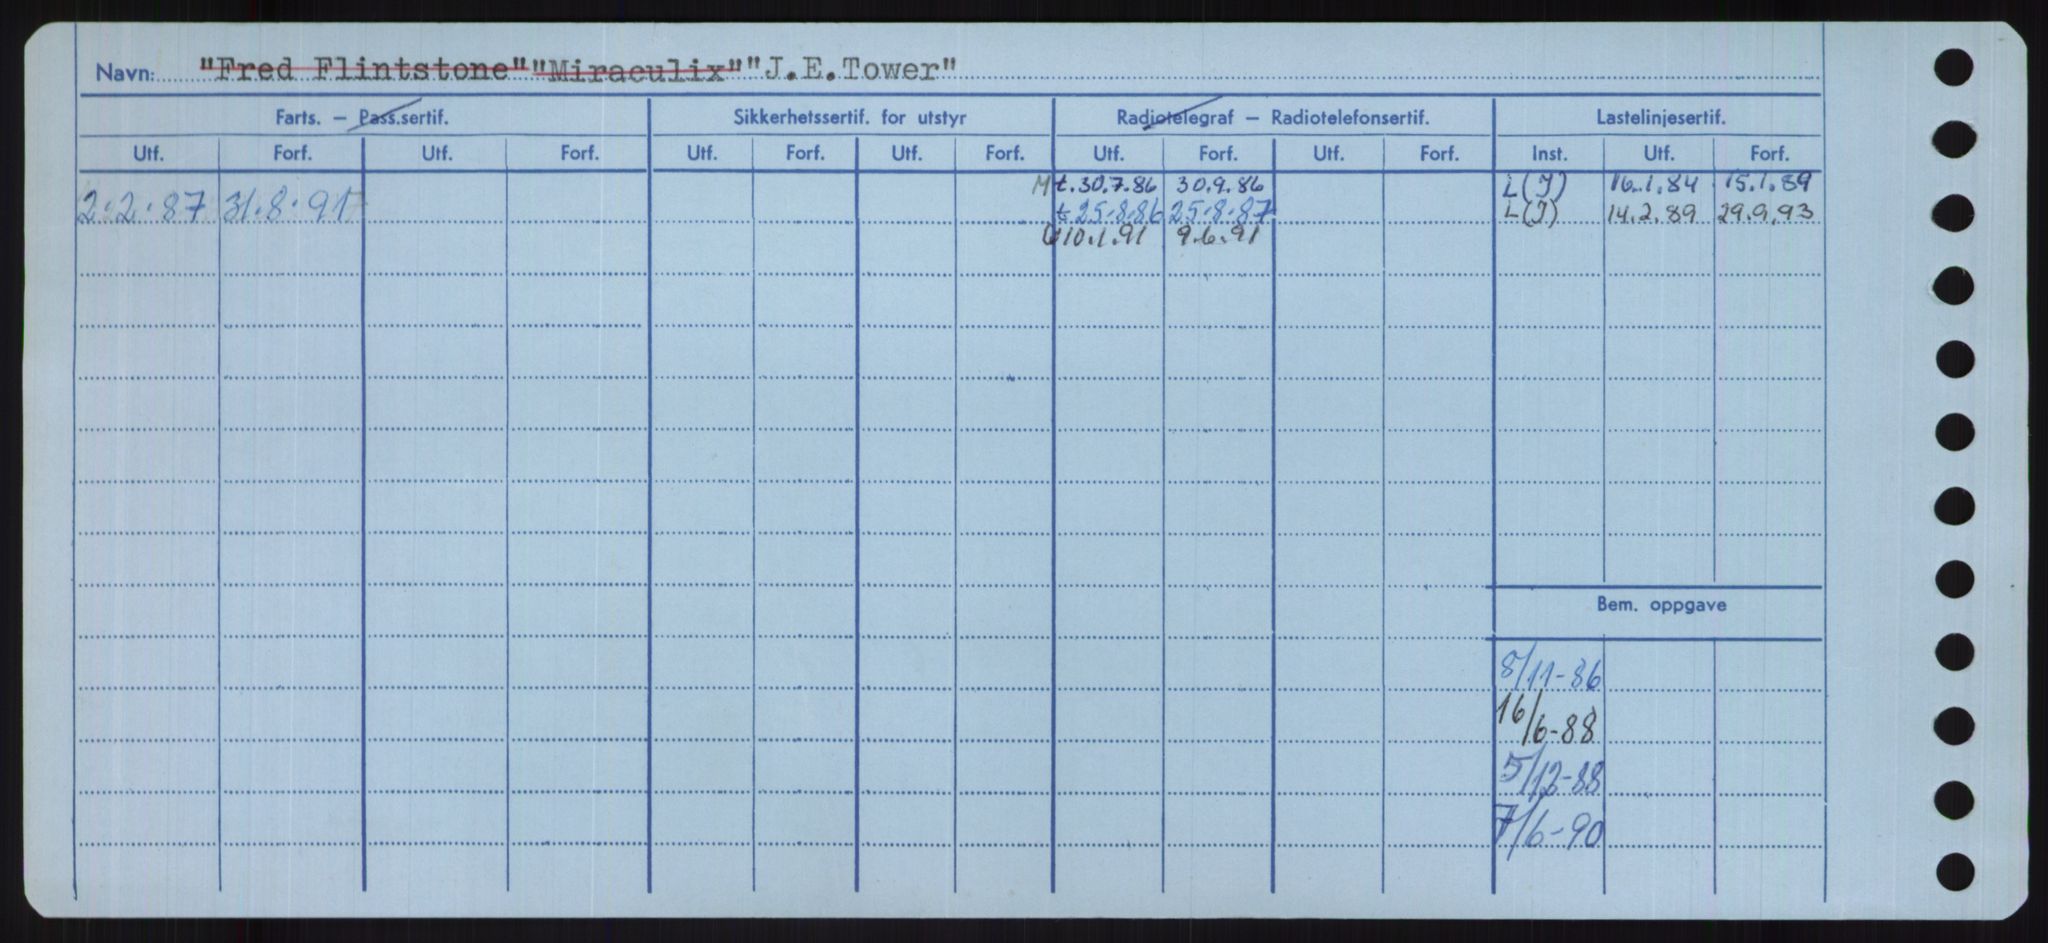 Navn: "Fred Flintstone" "Miraculix" "J.E.Tower"
Farts. — Pass.sertif. Sikkerhetssertif. for utstyr Radiotelegraf — Radiotelefonsertif. Lastelinjesertif.
Utf. Forf. Utf. Forf. Utf. Forf. Utf. Forf. Utf. Forf. Utf. Forf. Inst. Utf. Forf.
M t.30.7.86 30.9.86 L(J) 16.1.84 15.1.89
2.2.87 31.8.91 t 25.8.86 25.8.87 L(J) 14.2.89 29.9.93
10.1.91 9.6.91
Bem. oppgave
8/11-86
16/6-88
5/12-88
7/6-90